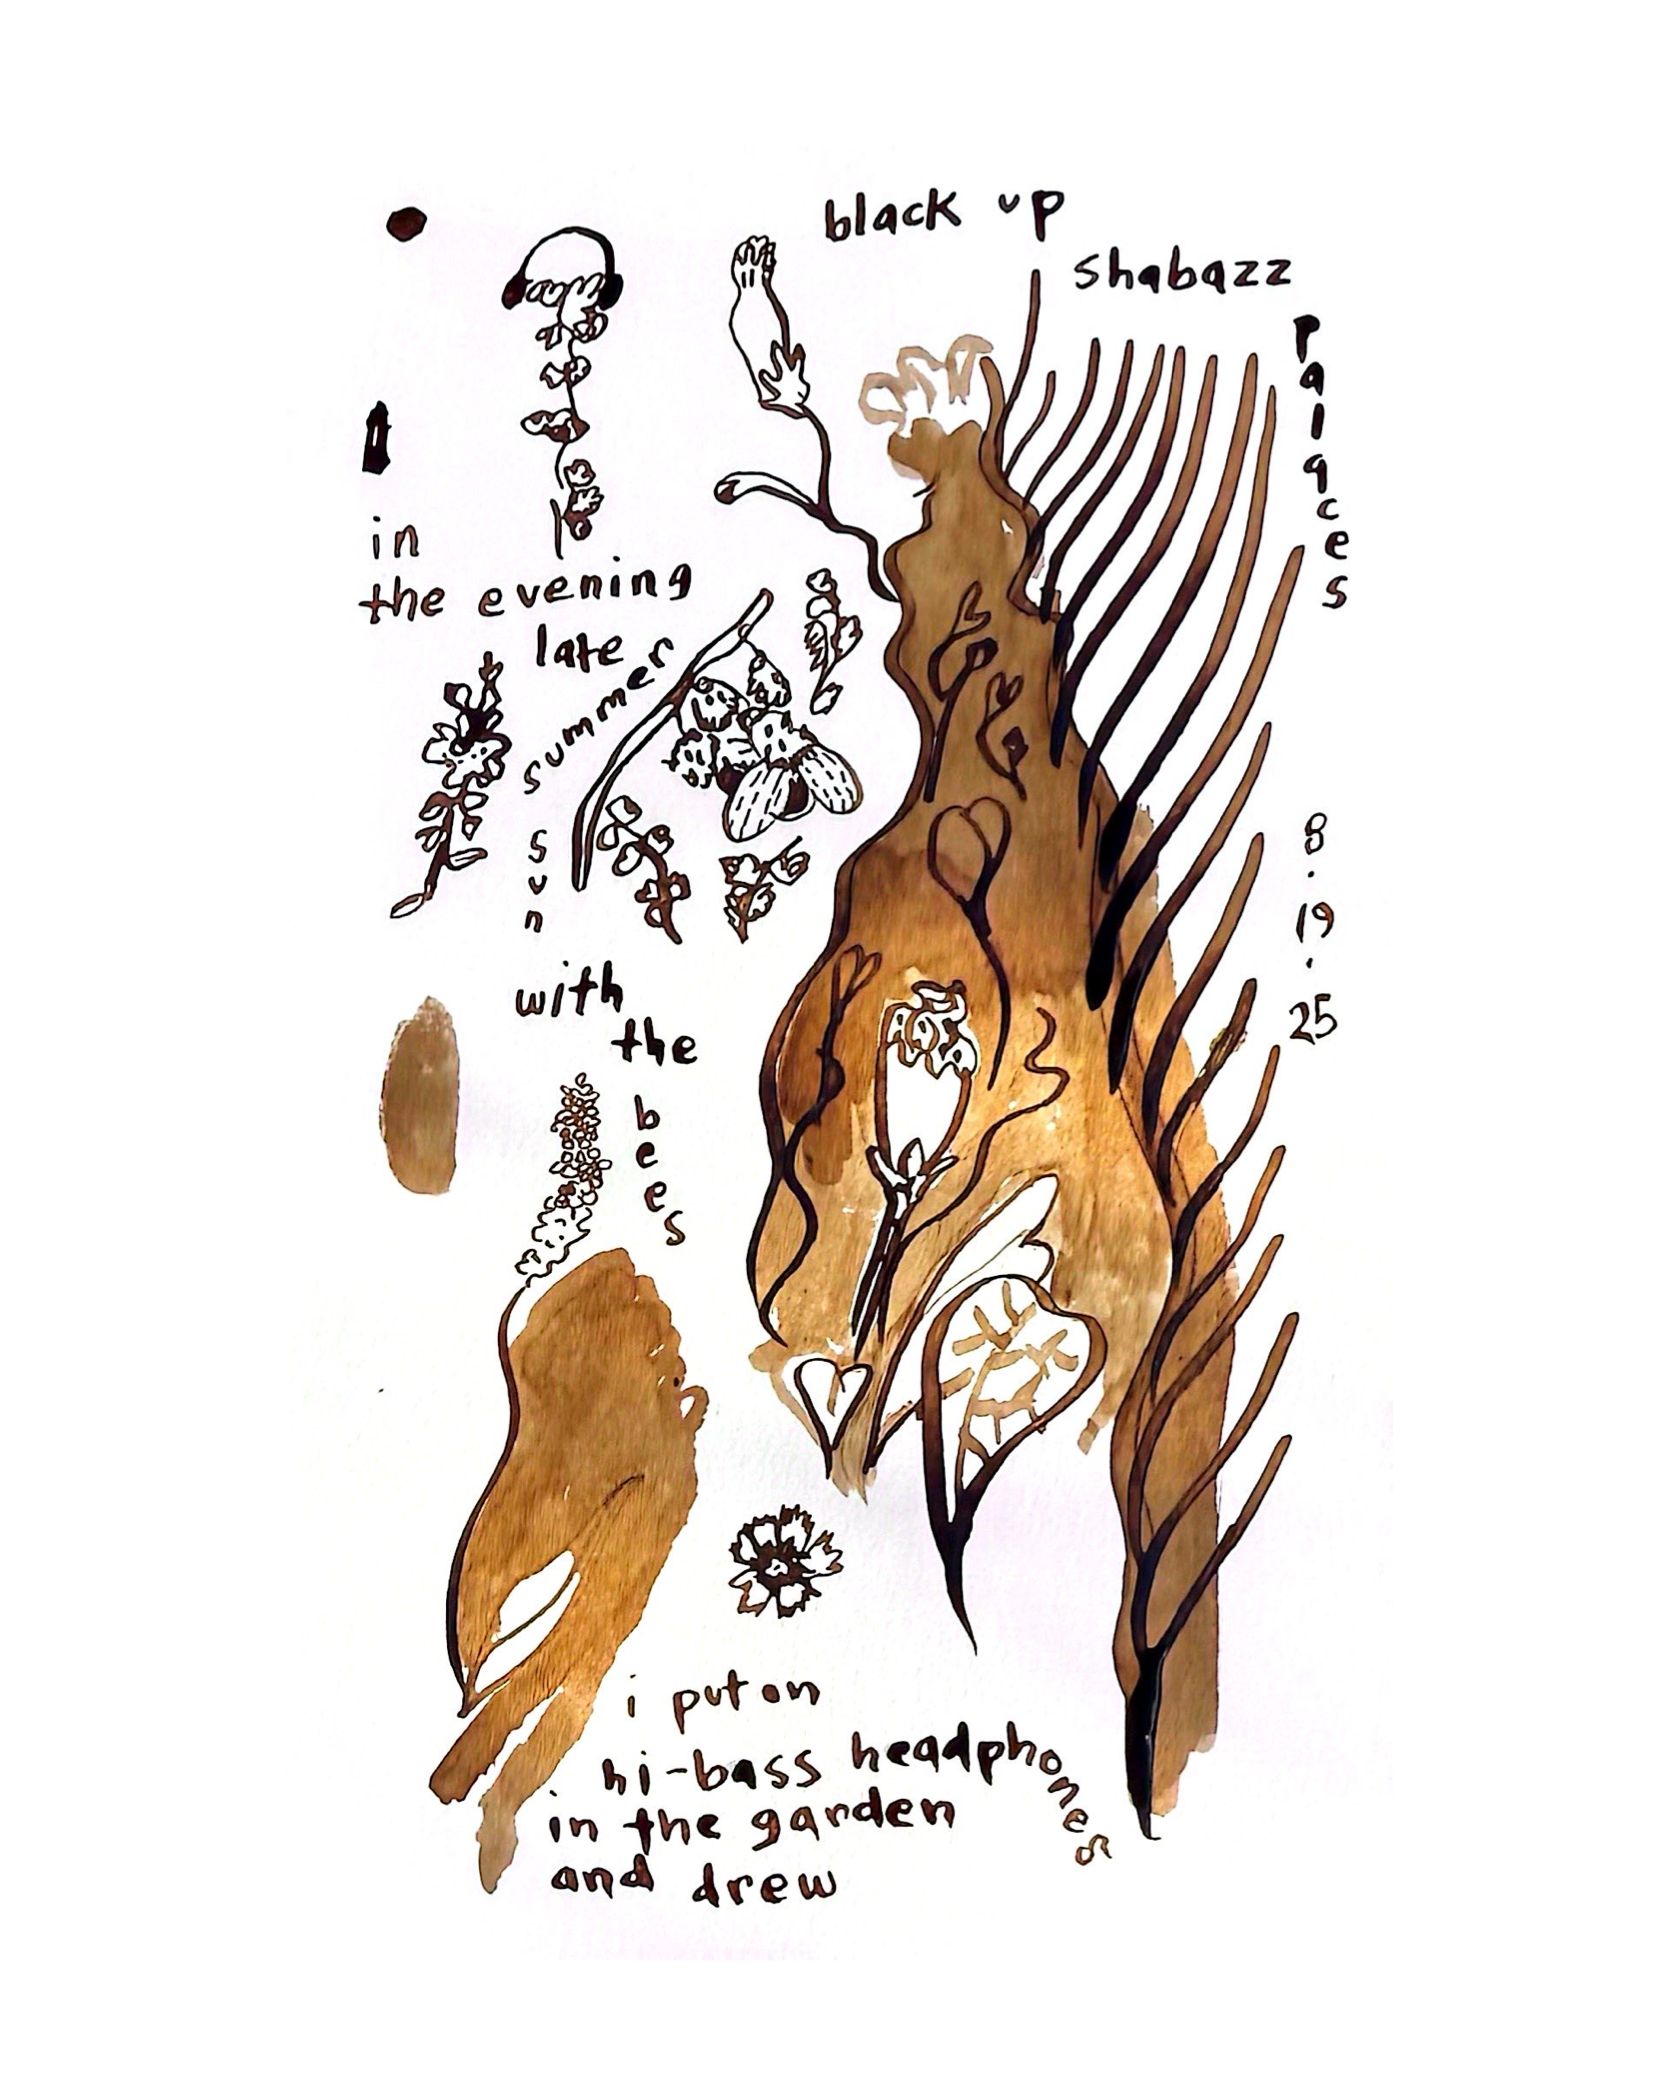 black up
shabazz
palaces
in
the evening
late
summer
sun
with
the
bees
8.19.25
i put on
hi-bass headphones
in the garden
and drew